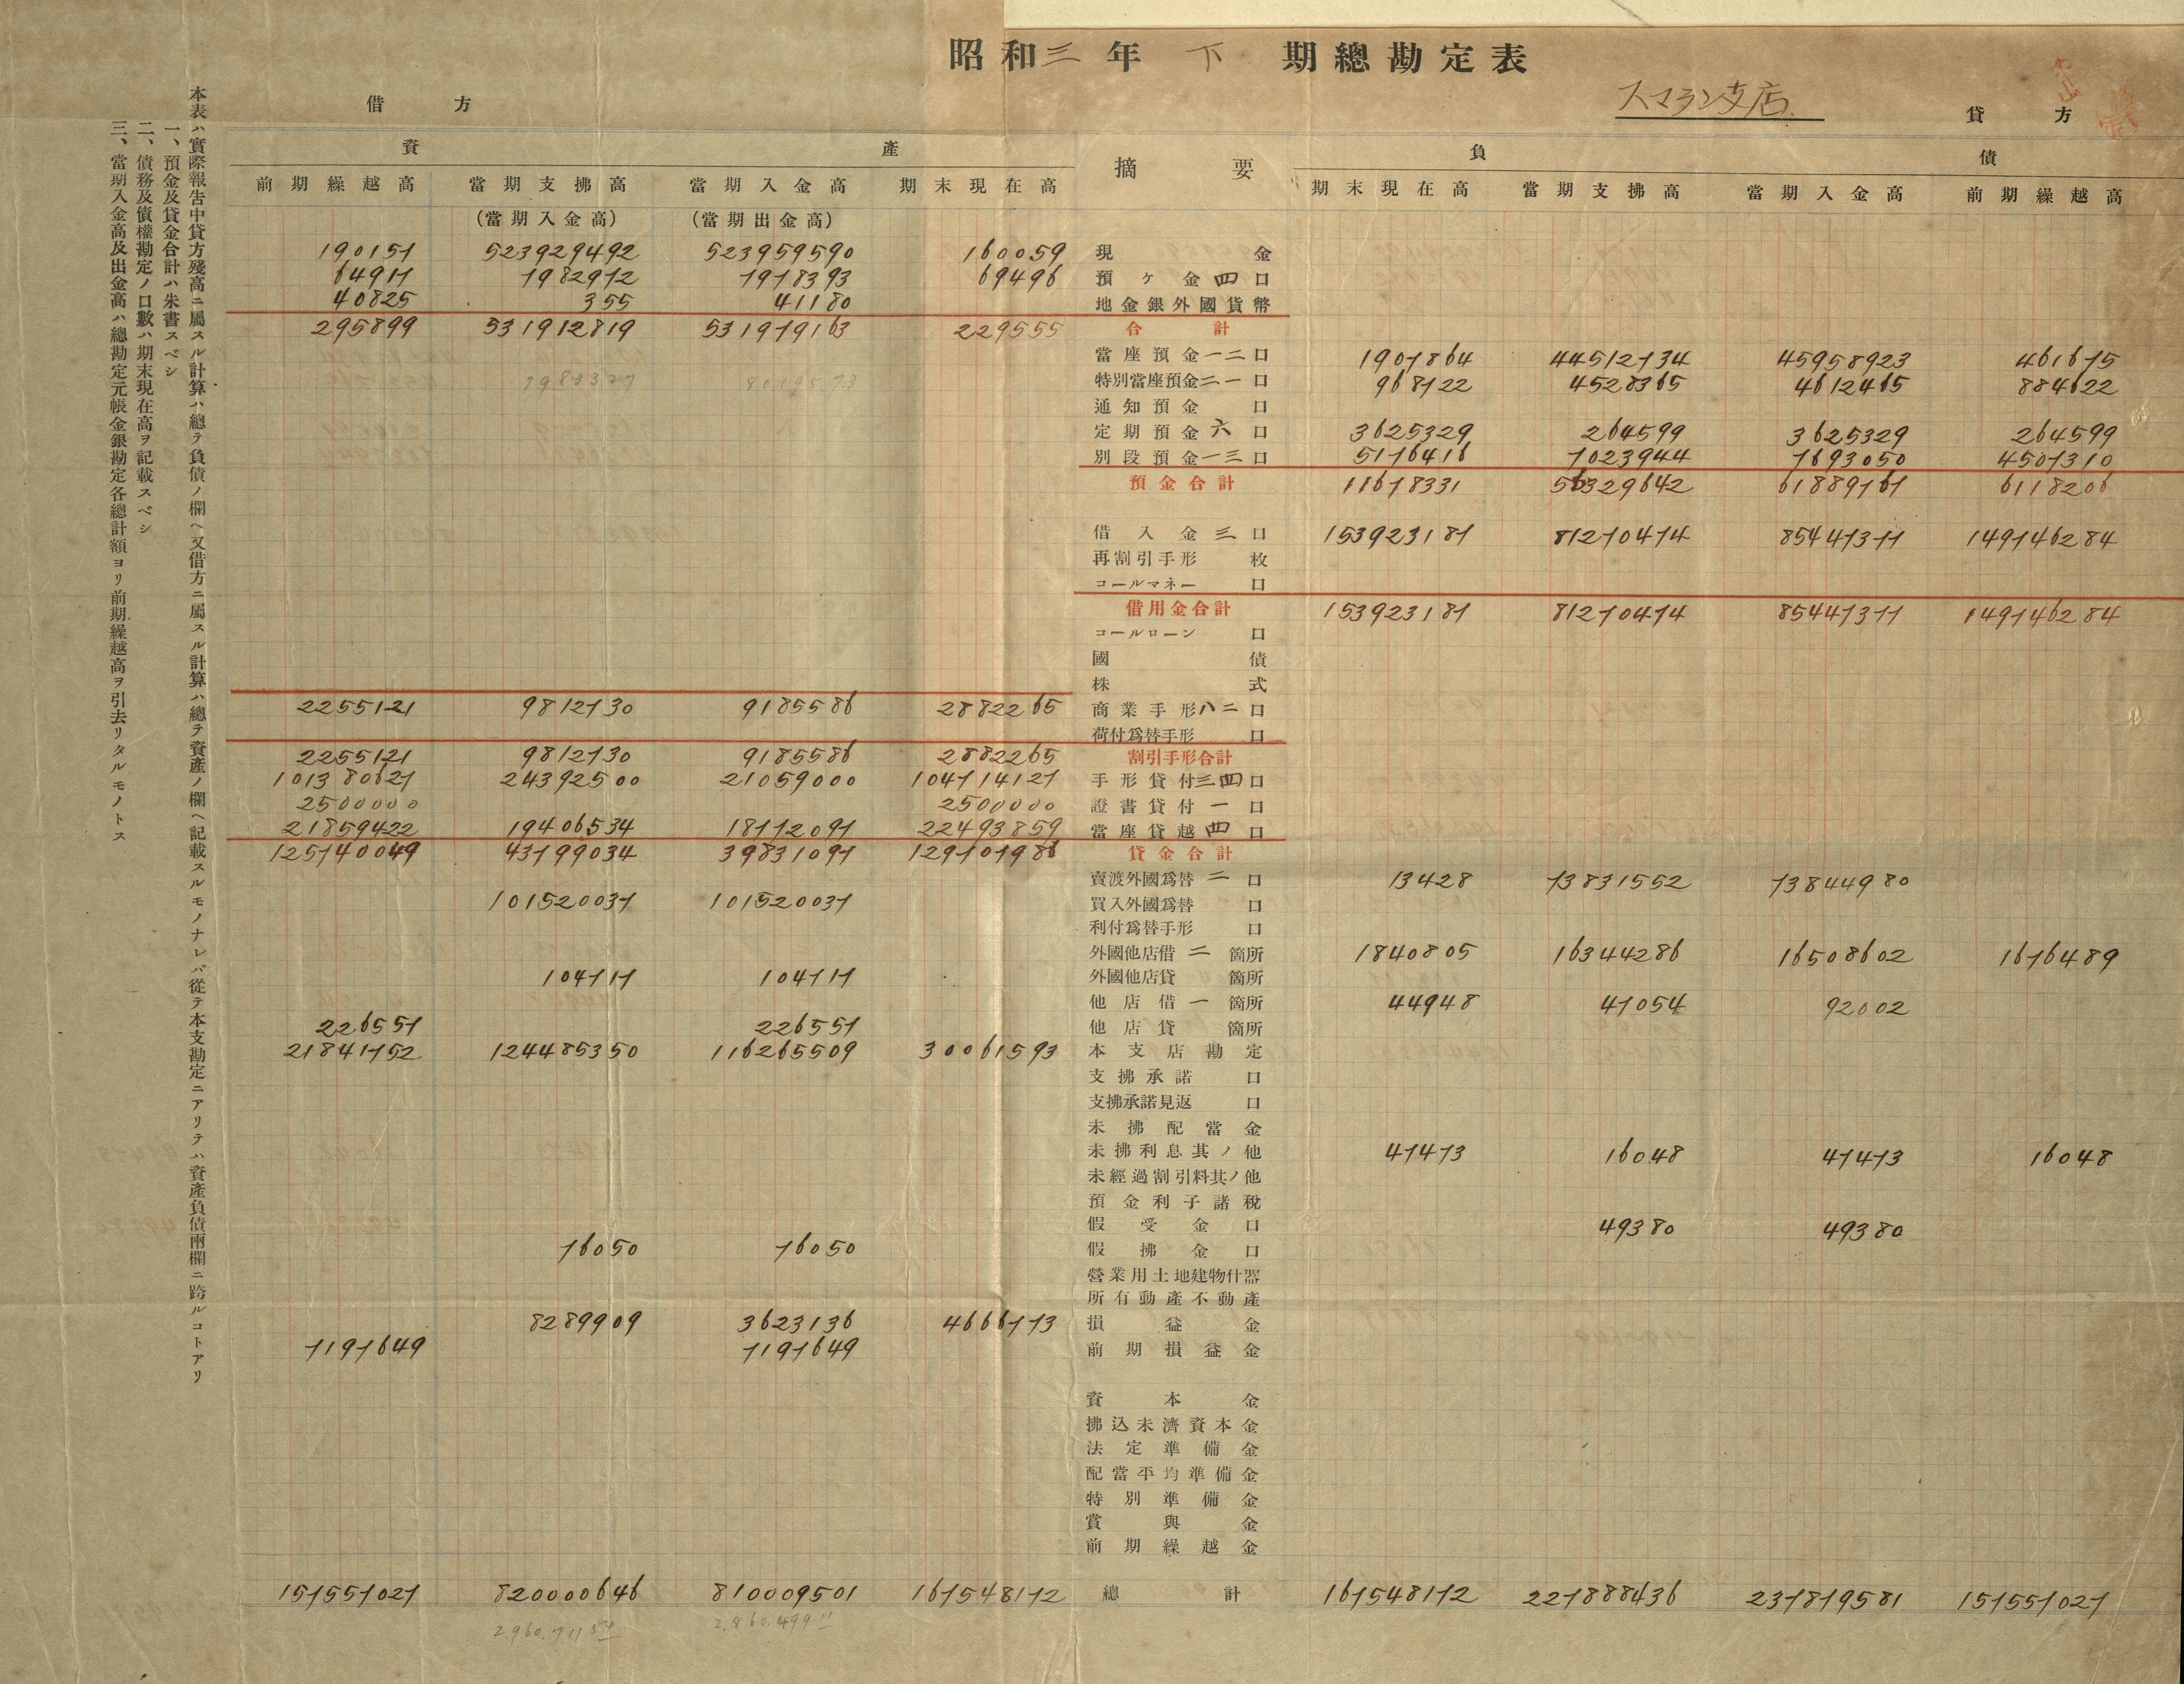 昭和三年 下 期總勘定表
スマラン支店
借方 貸方
資產 摘要 負債
前期繰越高 當期支拂高 當期入金高 期末現在高 期末現在高 當期支拂高 當期入金高 前期繰越高
(當期入金高) (當期出金高)
190157 523929492 523959590 160059 現金
64917 7982972 7978393 69496 預ヶ金四口
40825 355 41180 地金銀外國貨幣
295899 531912819 531979163 229555 合計
當座預金一二口 1907864 44512734 45958923 461675
特別當座預金二一口 968722 4528365 4612465 884622
通知預金 口
定期預金六口 3625329 264599 3625329 264599
別段預金一三口 5176416 7023944 7693050 4507310
預金合計 11678331 56329642 61889767 6118206
借入金三口 153923187 81270474 85447377 149746284
再割引手形 枚
コールマネー 口
借用金合計 153923187 81270474 85447377 149746284
コールローン 口
國債
株式
2255121 9812730 9185586 2882265 商業手形八二口
荷付爲替手形 口
2255121 9812730 9185586 2882265 割引手形合計
101380627 24392500 21059000 104714127 手形貸付三四口
2500000 2500000 證書貸付一口
21859422 19406534 18772097 22493859 當座貸越四口
125740049 43799034 39831097 129707986 貸金合計
賣渡外國爲替二口 13428 73831552 73844980
101520037 101520037 買入外國爲替 口
利付爲替手形 口
外國他店借二箇所 1840805 16344286 16508602 1676489
104717 104717 外國他店貸 箇所
他店借一箇所 44948 47054 92002
226557 226557 他店貸 箇所
21841752 124485350 116265509 30061593 本支店勘定
支拂承諾 口
支拂承諾見返 口
未拂配當金
未拂利息其ノ他 47473 16048 47473 16048
未經過割引料其ノ他
預金利子諸稅
假受金口 49380 49380
76050 76050 假拂金口
營業用土地建物什器
所有動產不動產
8289909 3623136 4666773 損益金
7197649 7197649 前期損益金
資本金
拂込未濟資本金
法定準備金
配當平均準備金
特別準備金
賞與金
前期繰越金
157557027 820000646 810009501 167548172 總計 167548172 227888436 237879581 157557027
本表ハ實際報吿中貸方殘高ニ屬スル計算ハ總テ負債ノ欄ヘ又借方ニ屬スル計算ハ總テ資產ノ欄ヘ記載スルモノナレバ從テ本支勘定ニアリテハ資產負債兩欄ニ跨ルコトアリ
一、預金及貸金合計ハ朱書スベシ
二、債務及債權勘定ノ口數ハ期末現在高ヲ記載スベシ
三、當期入金高及出金高ハ總勘定元帳金銀勘定各總計額ヨリ前期繰越高ヲ引去リタルモノトス